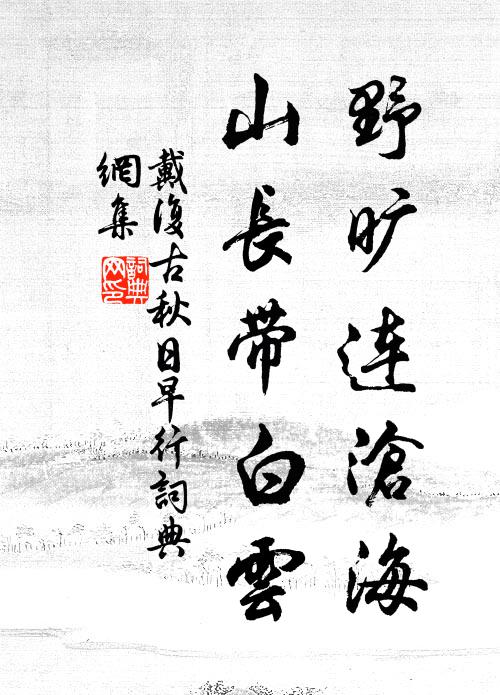 野旷连滄海
山長带白雲
戴復古秋日早行詞典
網集
詞典网印